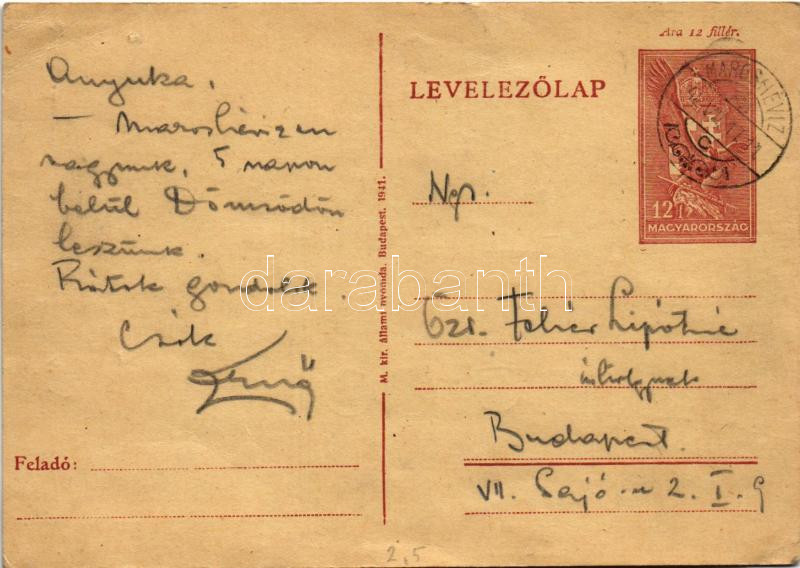 Anyuka,
– Maroshévizen
vagyunk, 5 napon
belül Dömsödön
leszünk.
Rátok gondolok.
Csók
Ernő
Feladó:
M. kir. állami nyomda. Budapest. 1941.
Ára 12 fillér.
LEVELEZŐLAP
MAROSHÉVIZ
C
12 f
MAGYARORSZÁG
Ngs.
özv. Fehér Lipótné
úrhölgynek
Budapest.
VII. Sajó-u 2. I. 9
2,5
darabanth.com